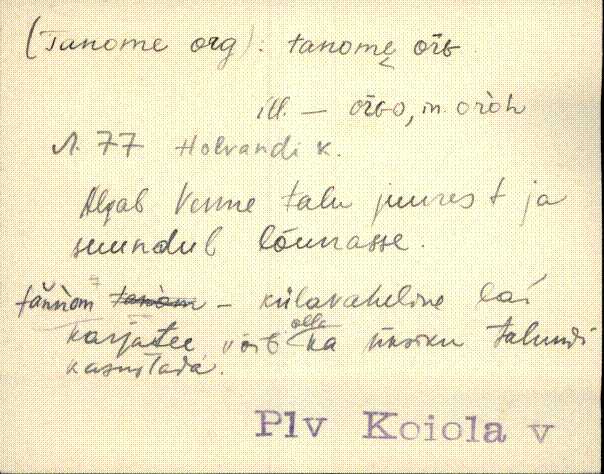 (Tanome org): tanome õrg
ill. — õrgo, in. oròh
n. 77 Holvandi k.
Algab Venne talu juurest ja
suundub lõunasse.
tännòm – külavaheline lai
karjatee võib olla ka üksiku talundi
kasustada.
Plv Koiola v